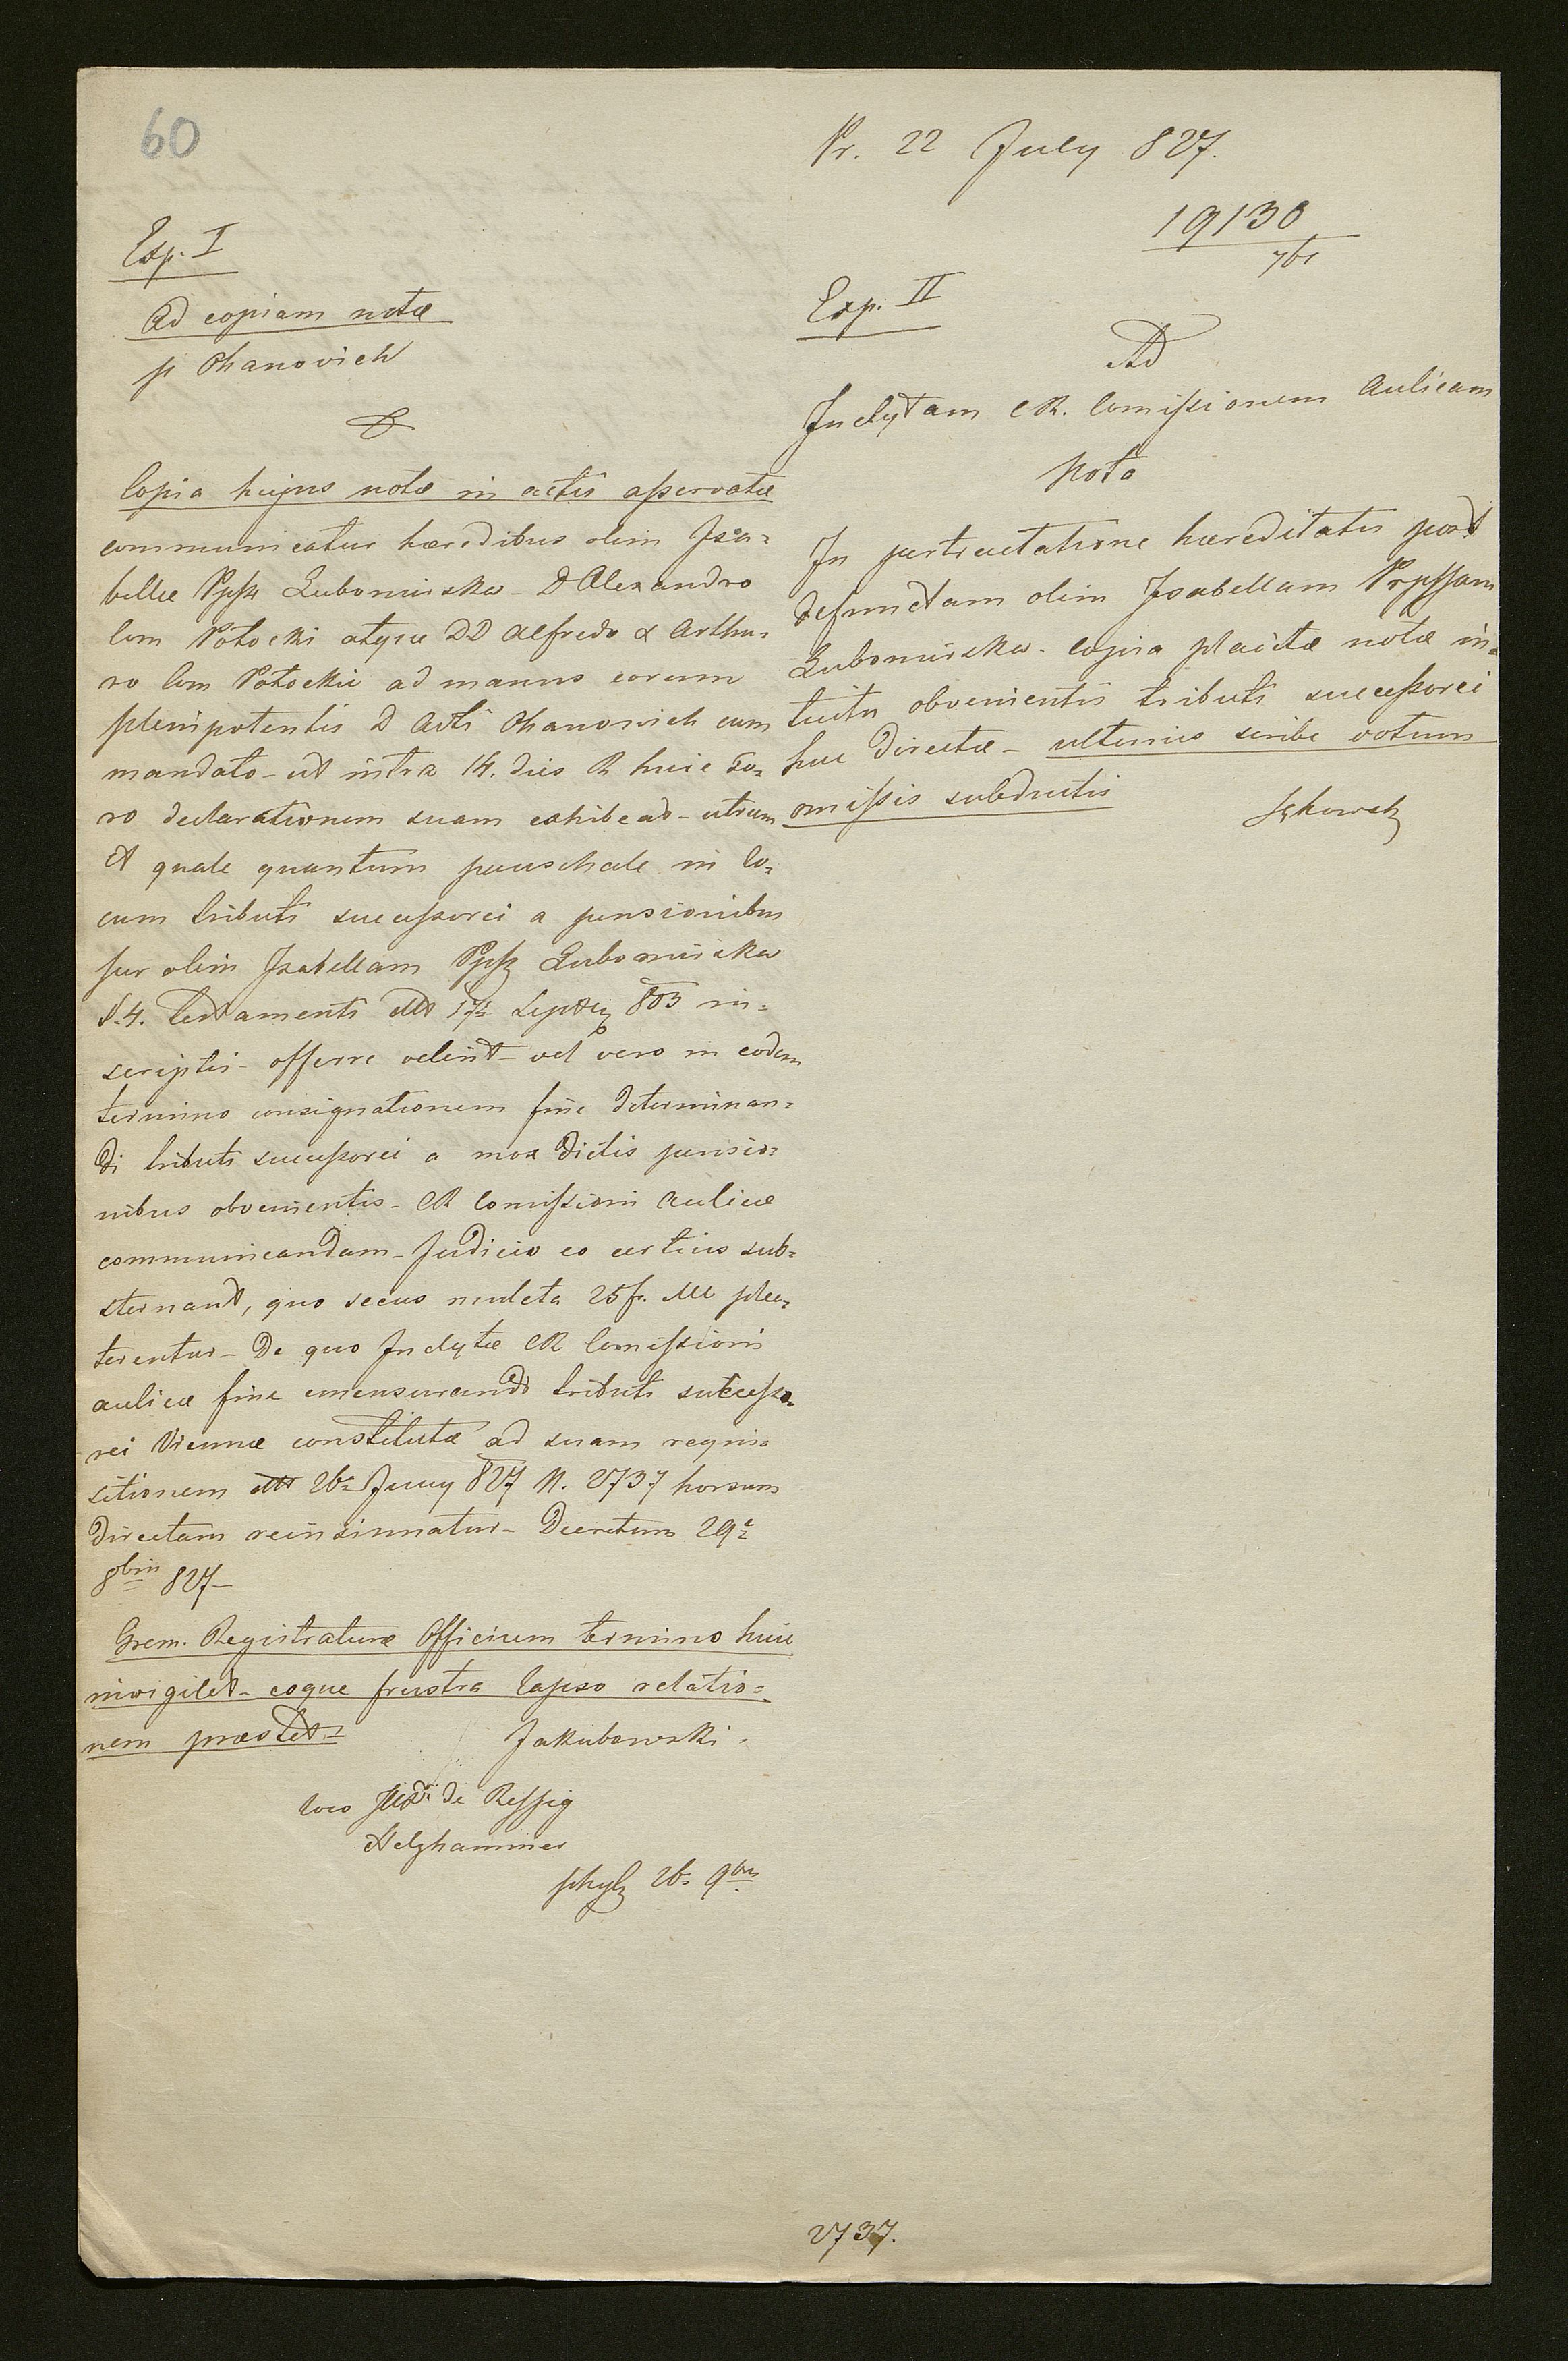 60
Exp. I
Ad copiam notæ
p Ohanovich
Copia hujus notæ in actis asservatæ
communicatur hæredibus olim Isa=
bellæ Ppssæ Lubomirska – D Alexandro
Com Potocki atque DD Alfredo & Arthu=
ro Com Potockie ad manus eorum
plenipotentis D Adti Ohanovich cum
mandato – ut intra 14. dies R huic Fo=
ro declarationem suam exhibeat – utrum
et quale quantum pauschale in lo=
cum tributi successorei a pensionibus
per olim Isabellam Ppss Lubomirska
§. 4. Testamenti ddt 17: Septb 803 in=
scriptis – offerre velint – vel vero in eodem
termino consignationem fine determinan=
di tributi successorei a mox dictis pensio=
nibus obvenientis – CR Comissioni Aulicæ
communicandam – Judicio eo certius sub=
sternant, quo secus mulcta 25 fr. MC plec=
terentur – De quo Inclytæ CR Comissioni
aulicæ fine emensurandi tributi successo=
rei Viennæ constitutæ ad suam requi=
sitionem ddt 26: Juny 827 N. 2737 horsum
directam reinsinuatur – Decretum 29:
8bris 827 –
Grem. Registraturæ Officium termino huic
invigilet – eoque frustra lapso relatio=
nem præstet –
Jakubowski.
loco de Ressig
Nelzhammer
26. 9bris
Pr. 22 July 827.
19130
Exp. II
Ad
Inclytam CR. Comissionem Aulicam
Nota
In pertractatione hæreditatis post
defunctam olim Isabellam Prpssam
Lubomirska – copia placitæ notæ in=
tuitu obvenientis tributi successorei
huc directæ – ulterius scribe votum
omissis subductis
2737.